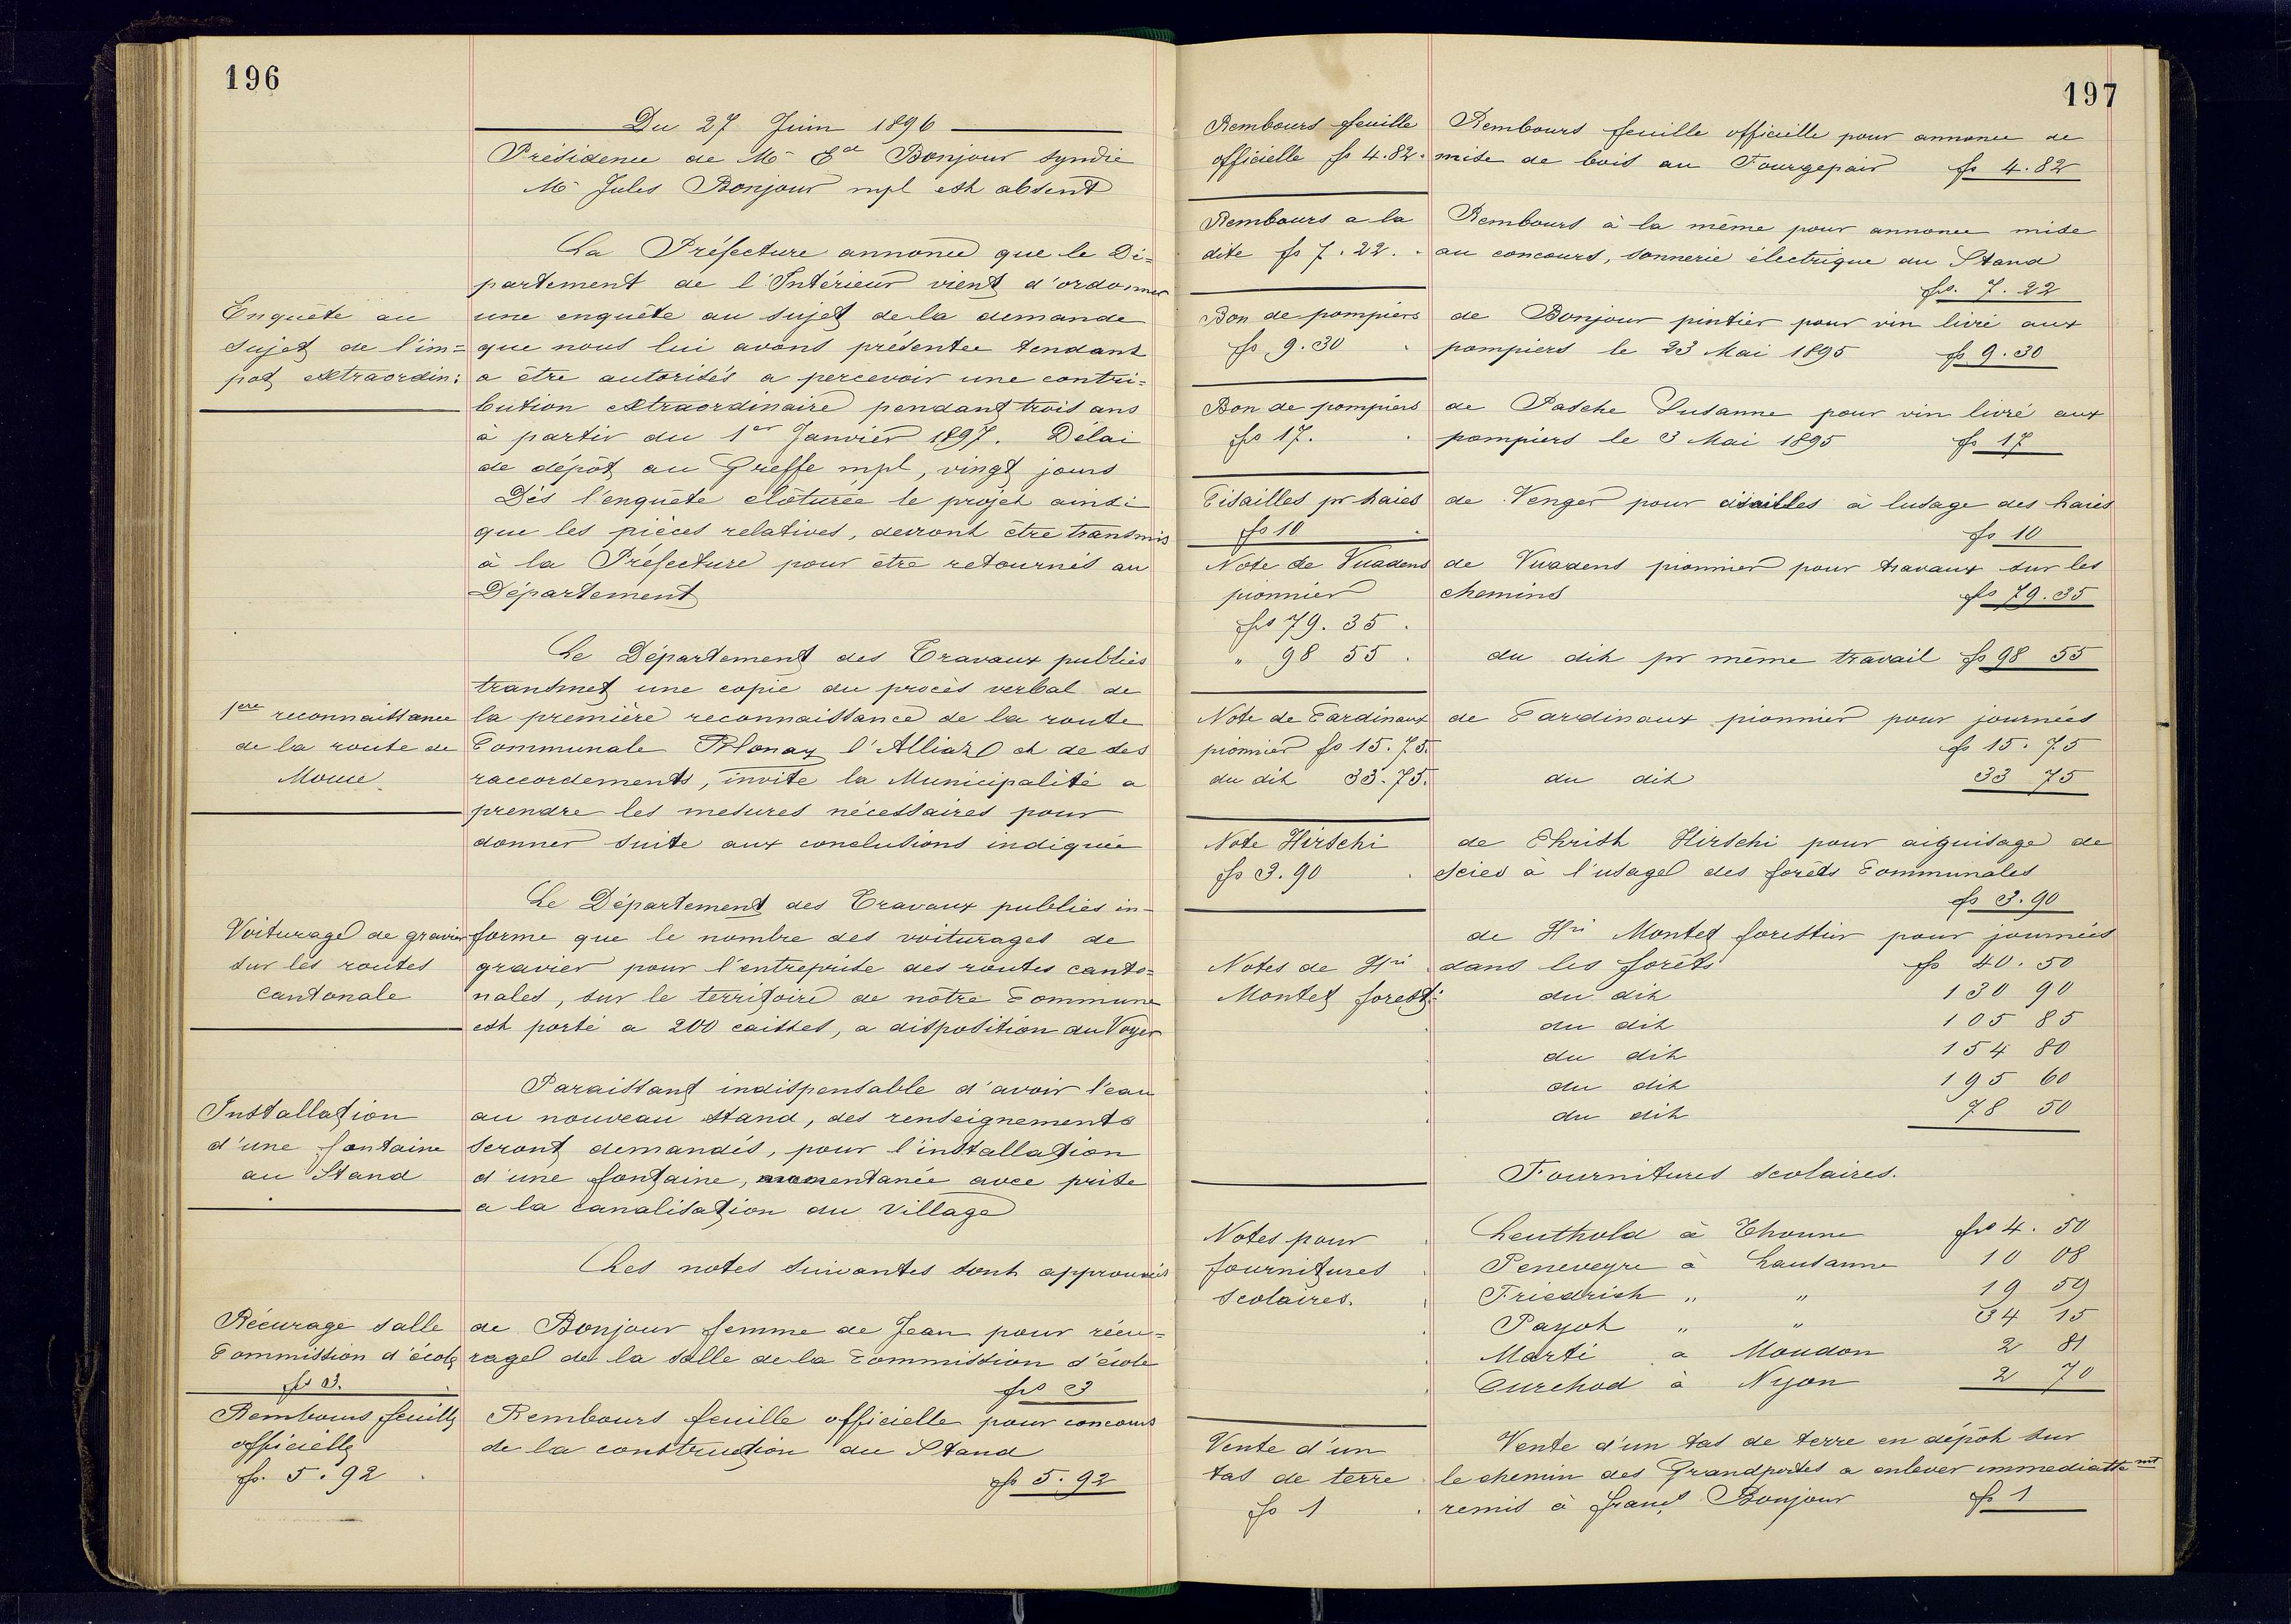 196
Du 27 Juin 1896
Présidence de Mr Ed Bonjour syndic
Mr Jules Bonjour mpl est absent
La Préfecture annonce que le Dé=
partement de l'Intérieur vient d'ordonner
Enquête au
sujet de l'im=
pot extraordin:
une enquête au sujet de la demande
que nous lui avons présentée tendant
a être autorisés a percevoir une contri=
bution extraordinaire pendant trois ans
à partir du 1er Janvier 1897. Délai
de dépôt au Greffe mpl, vingt jours
Dès l'enquête clôturée le projet ainsi
que les pièces relatives, devront être transmis
à la Préfecture pour être retournés au
Département
Le Département des Travaux publics
transmet une copie du procès verbal de
1ere reconnaissance
de la route de
la première reconnaissance de la route
Communale Blonay l'Alliaz et de ses
raccordements, invite la Municipalité a
prendre les mesures nécessaires pour
donner suite aux conclusions indiquée
Le Département des Travaux publics in-
Voiturage de gravier
sur les routes
cantonale
forme que le nombre des voiturages de
gravier pour l'entreprise des routes canto=
nales, sur le territoire de nôtre Commune
est porté a 200 caisses, a disposition du Voyer
Paraissant indispensable d'avoir l'eau
Installation
d'une fontaine
au Stand
au nouveau stand, des renseignements
seront demandés, pour l'installation
d'une fontaine, momentanée avec prise
a la canalisation du village
Les notes suivantes sont approuvées
Récurage salle
Commission d'école
frs 3.
de Bonjour femme de Jean pour récu=
rage de la salle de la Commission d'école
frs 3
Rembours feuille
officielle
fr. 5.92
Rembours feuille officielle pour concours
de la construction du Stand
frs 5.92
197
Rembours feuille
officielle fs 4.82.
Rembours feuille officielle pour annonce de
mise de bois au Fourgepair fs 4.82
Rembours a la
dite fs 7.22.
Rembours à la même pour annonce mise
au concours, sonnerie électrique du Stand
frs. 7.22
Bon de pompiers
fs 9.30
de Bonjour pintier pour vin livré aux
pompiers le 23 Mai 1895 fs 9.30
Bon de pompiers
frs 17.
de Pasche Susanne pour vin livré aux
pompiers le 3 Mai 1895 fs 17
Cisailles pr haies
frs 10
de Venger pour cisailles à lusage des haies
fs 10
Note de Vuadens
pionnier
frs 79.35
" 98 55
de Vuadens pionnier pour travaux sur les
chemins frs 79.35
du dit pr même travail fs 98 55
Note de Cardinaux
pionnier fs 15.75.
du dit 33.75.
de Cardinaux pionnier pour journées
fs 15.75
du dit 33 75
Note Hirschi
frs 3.90
de Christ Hirschi pour aiguisage de
scies à l'usage des forêts Communales
fs 3.90
Notes de Hri
Montet forest:
de Hri Montet forestier pour journées
dans les forêts fs 40.50
du dit 130 90
du dit 105 85
du dit 154 80
du dit 195 60
du dit 78 50
Fournitures scolaires.
Notes pour
fournitures
scolaires.
Leuthold à Thoune frs 4.50
Peneveyre à Lausanne 10 08
Friedrich " " 19 59
Payot " " 34 15
Marti a Moudon 2 81
Curchod à Nyon 2 70
Vente d'un
tas de terre
fs 1
Vente d'un tas de terre en dépôt sur
le chemin des Grandportes a enlever immediattemnt
remis à Franç Bonjour fs 1